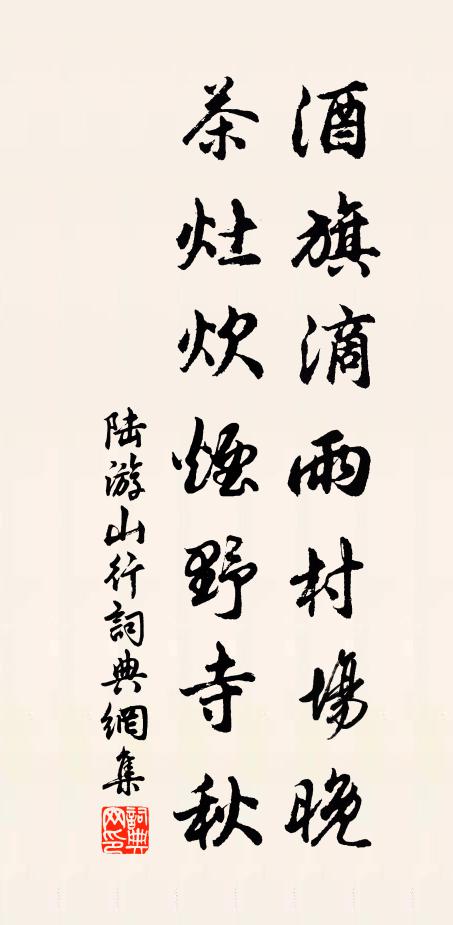 酒旗滴雨村場晚
茶灶炊煙野寺秋
陆游山行詞典網集
詞典